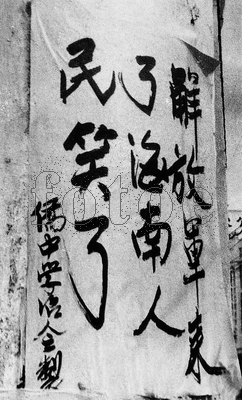 解放軍来
了海南人
民笑了
僑中学活会製
fotoe